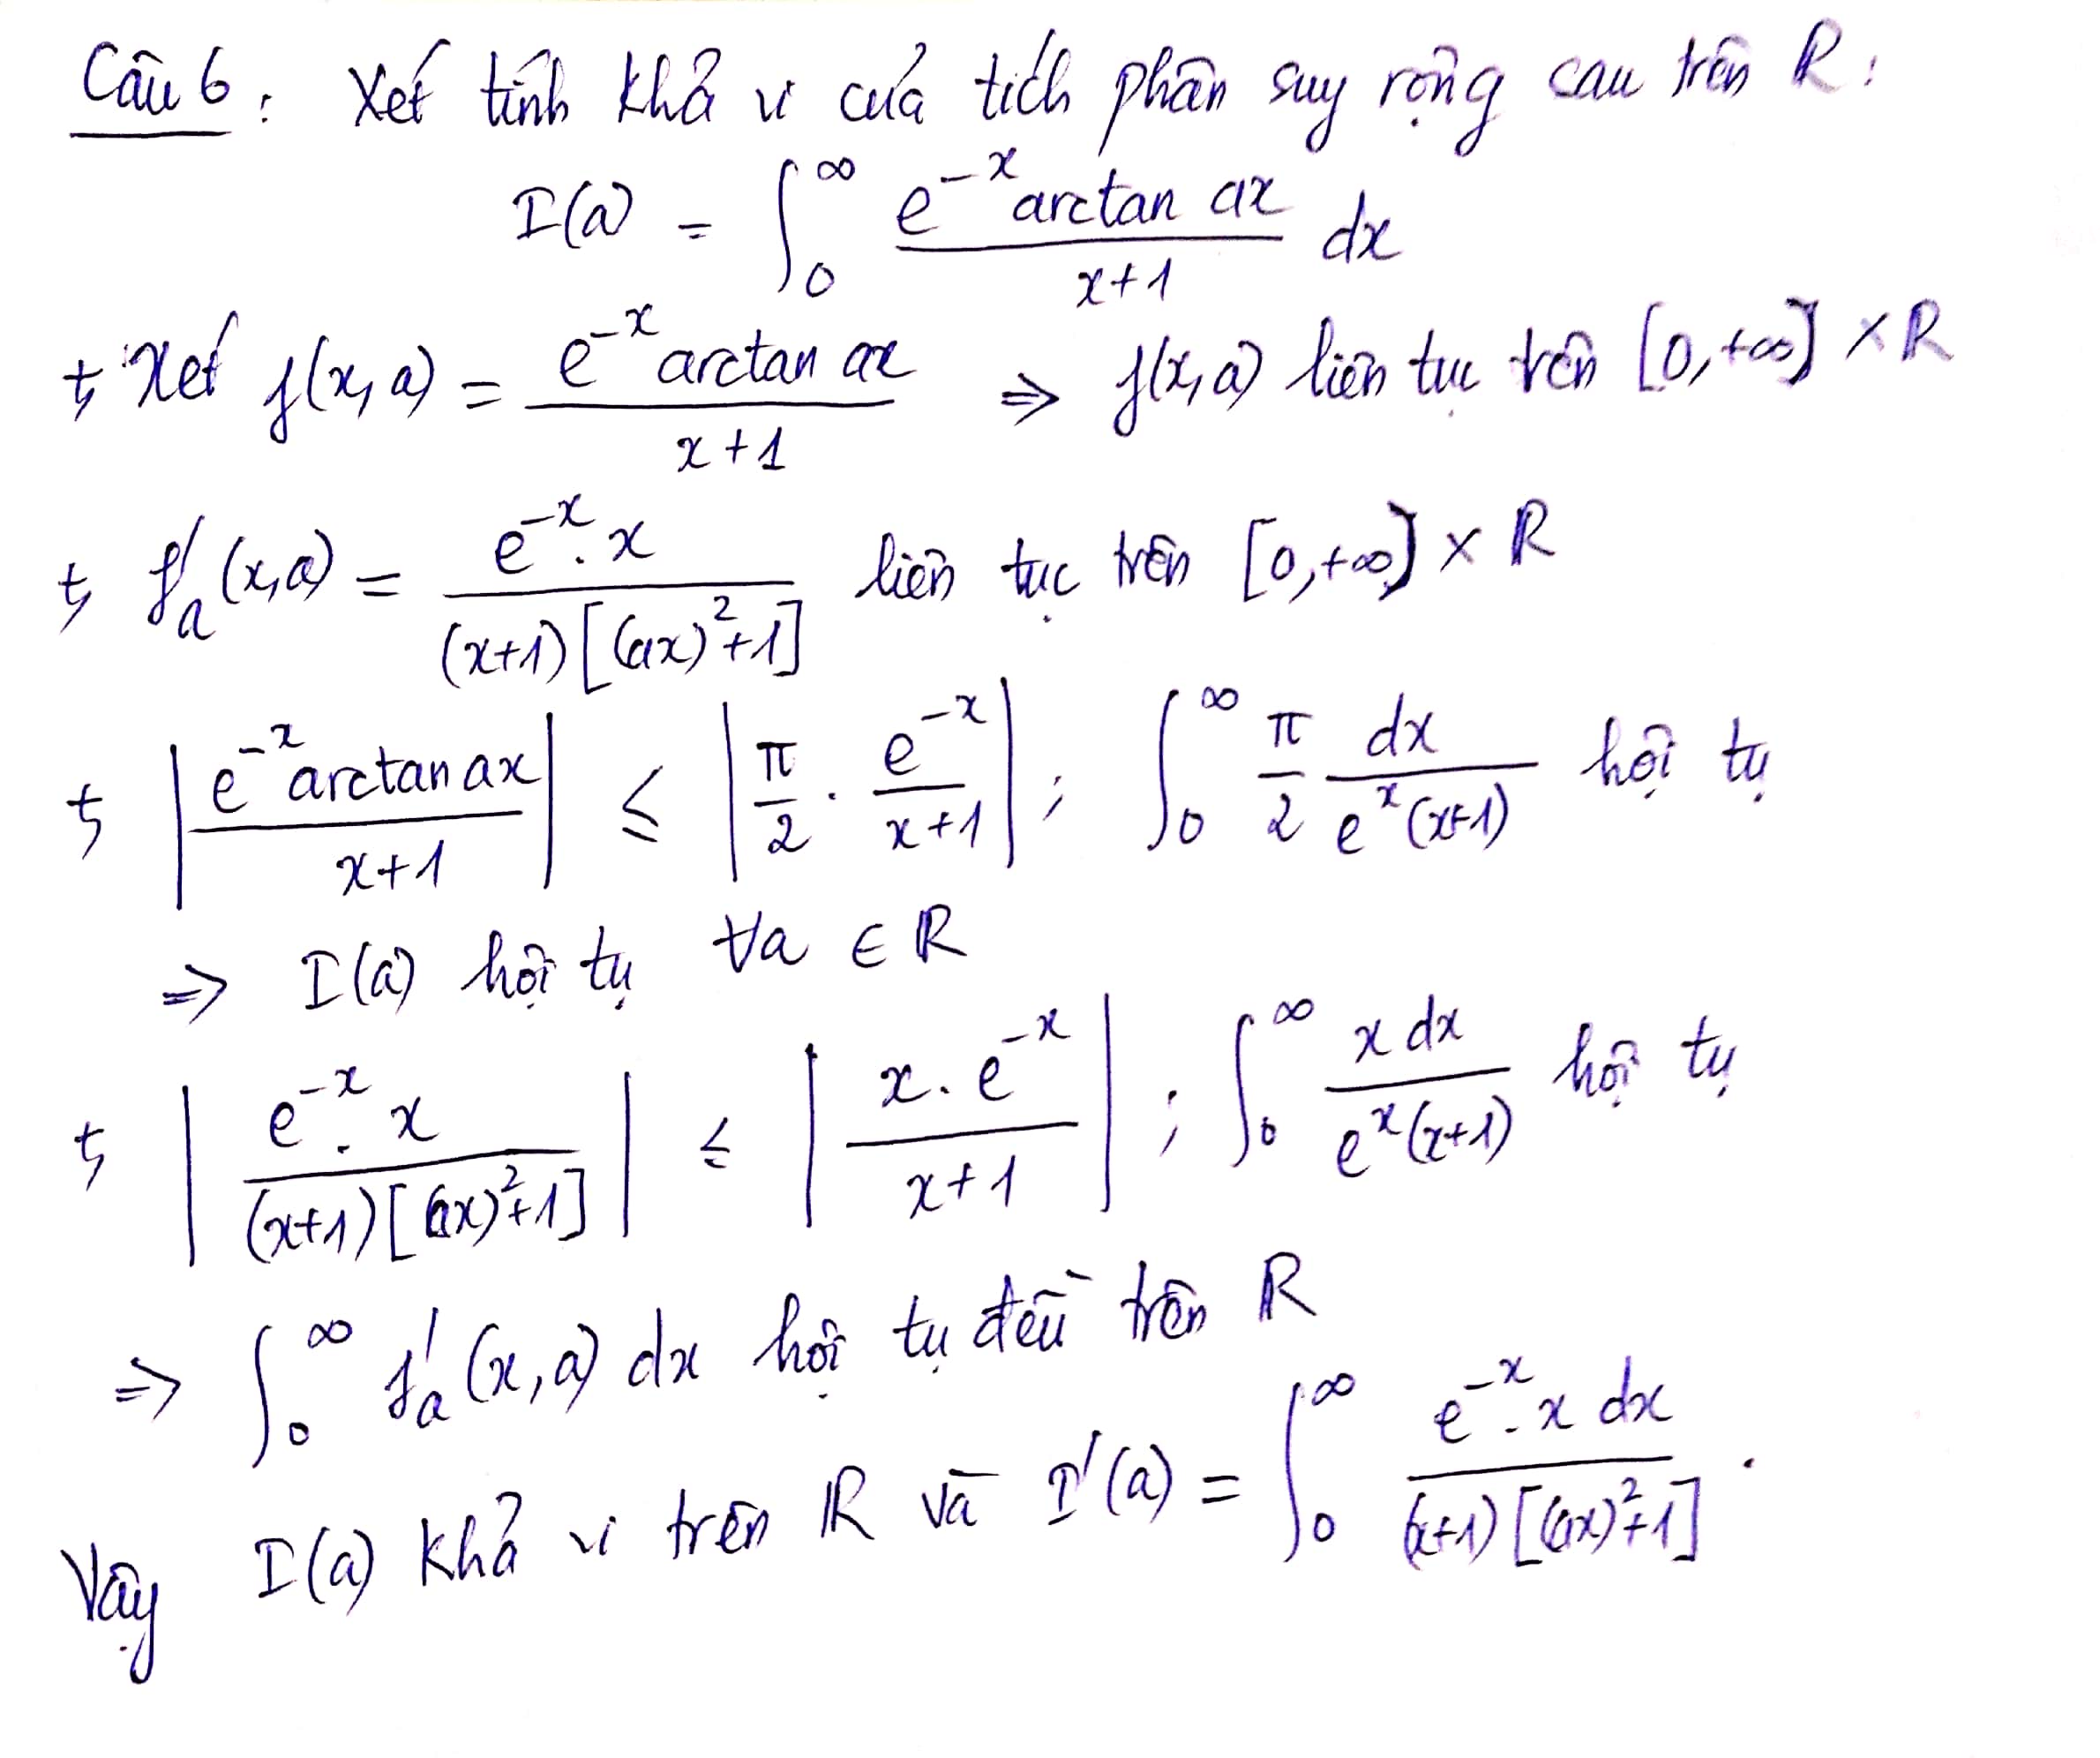 Câu 6: Xét tính khả vi của tích phân suy rộng sau trên R:
I(a) = ∫₀^∞ (e^{-x} arctan ax)/(x+1) dx
+, Xét f(x,a) = (e^{-x} arctan ax)/(x+1) ⇒ f(x,a) liên tục trên [0,+∞] × R
+, f'_a(x,a) = (e^{-x}.x)/((x+1)[(ax)²+1]) liên tục trên [0,+∞] × R
+, |(e^{-x} arctan ax)/(x+1)| ≤ |π/2 . e^{-x}/(x+1)| ; ∫₀^∞ π/2 dx/(e^x(x+1)) hội tụ
⇒ I(a) hội tụ ∀a ∈ R
+, |(e^{-x}.x)/((x+1)[(ax)²+1])| ≤ |(x.e^{-x})/(x+1)| ; ∫₀^∞ (x dx)/(e^x(x+1)) hội tụ
⇒ ∫₀^∞ f'_a(x,a) dx hội tụ đều trên R
Vậy I(a) khả vi trên R và I'(a) = ∫₀^∞ (e^{-x}.x dx)/((x+1)[(ax)²+1]) .